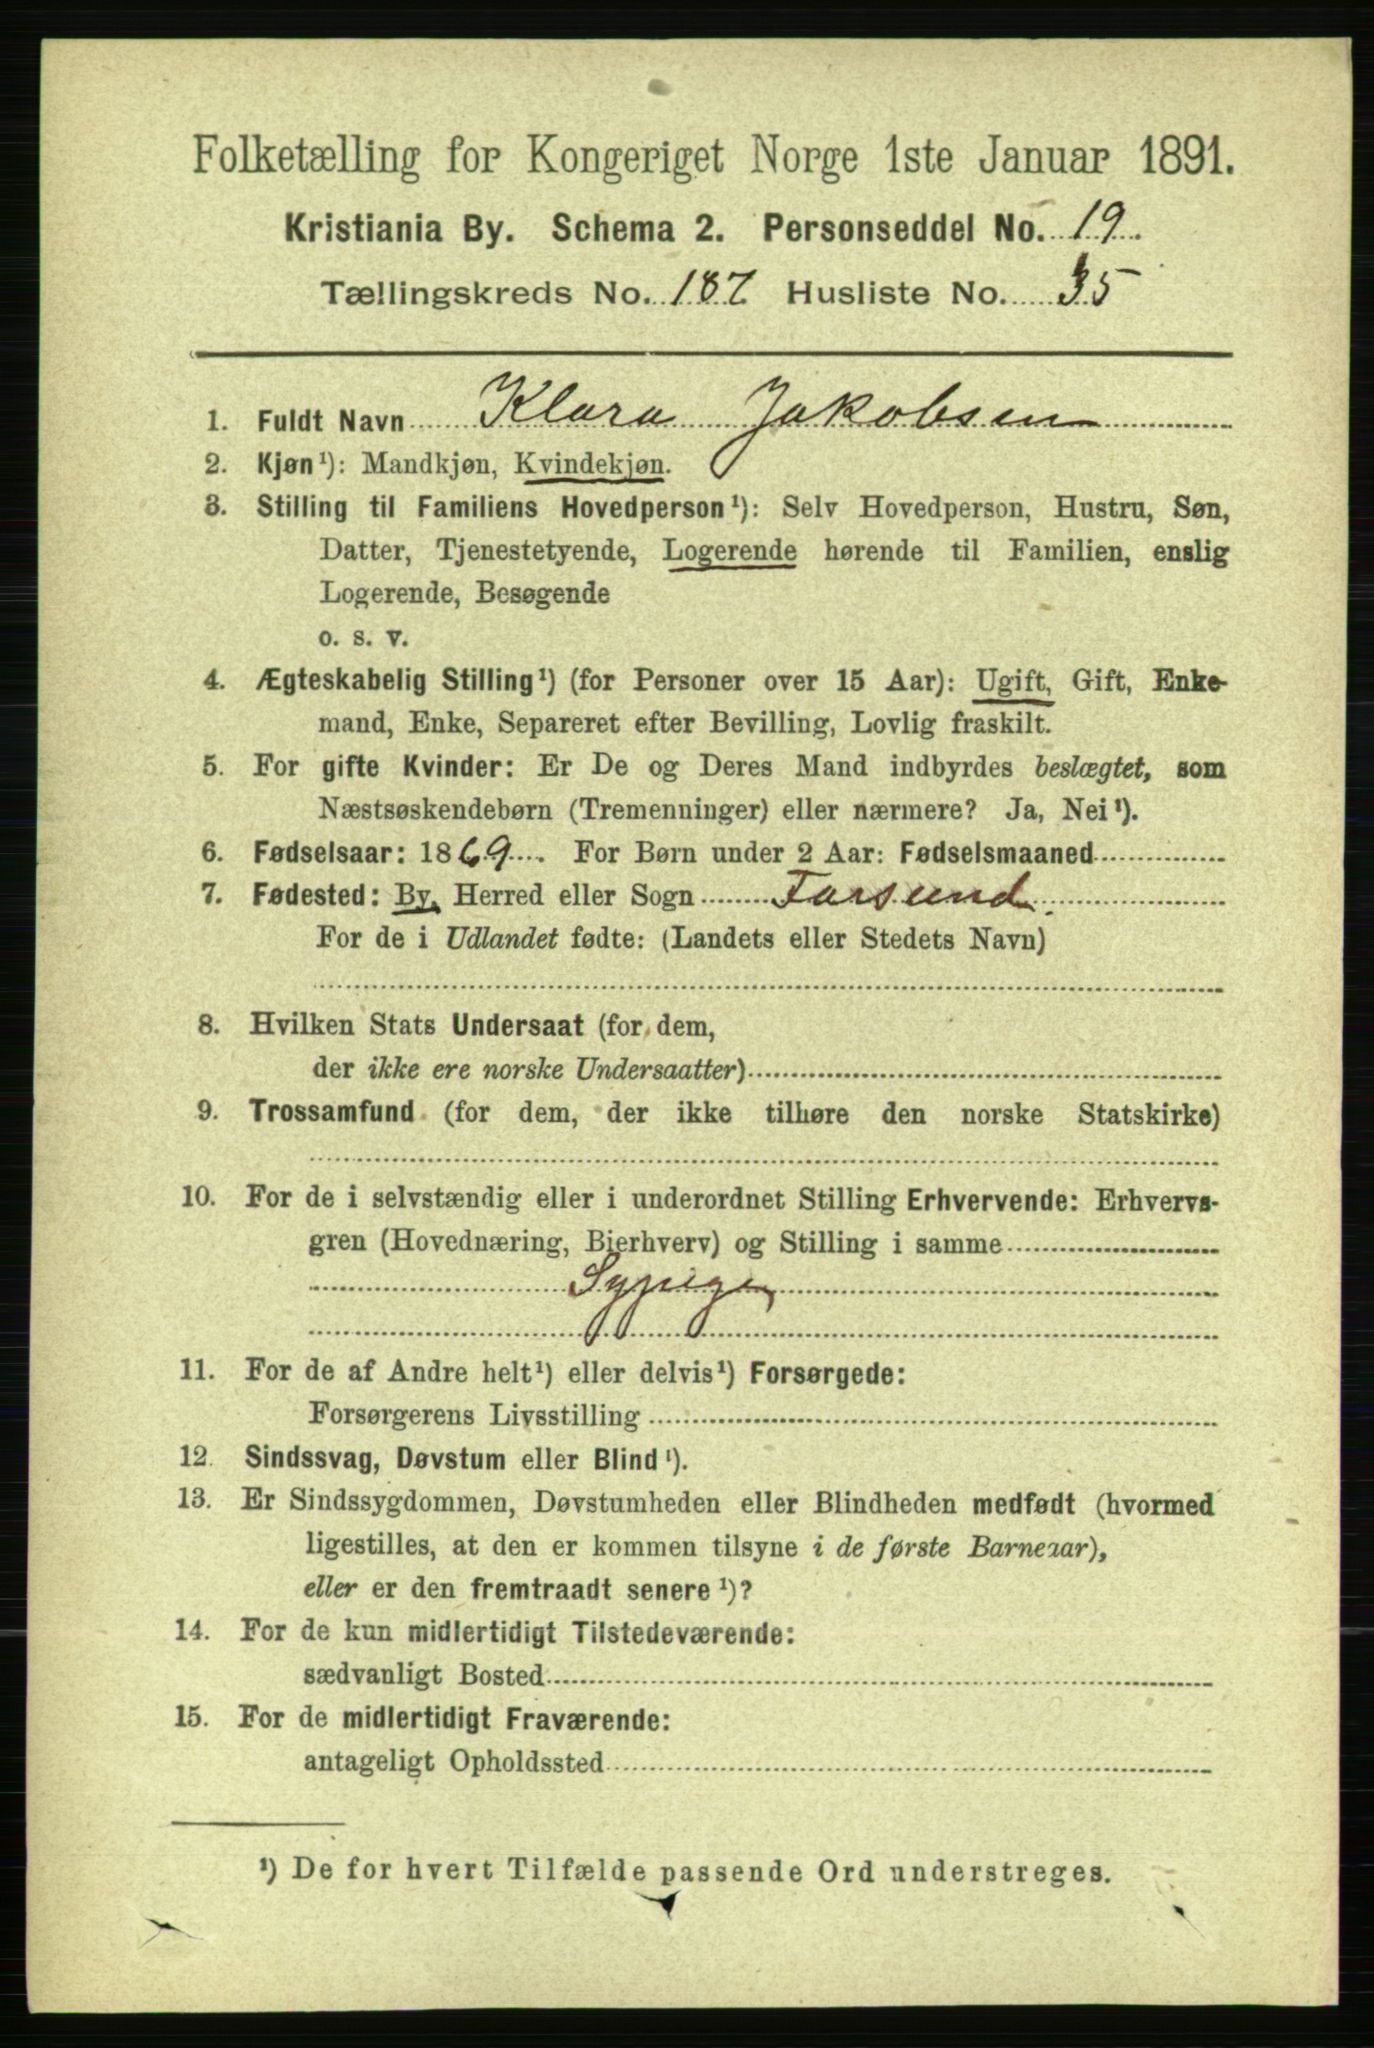 Folketælling for Kongeriget Norge 1ste Januar 1891.
Kristiania By. Schema 2. Personseddel No. 19
Tællingskreds No. 187 Husliste No. 35
1. Fuldt Navn Klara Jakobsen
2. Kjøn¹): Mandkjøn, Kvindekjøn.
3. Stilling til Familiens Hovedperson¹): Selv Hovedperson, Hustru, Søn,
Datter, Tjenestetyende, Logerende hørende til Familien, enslig
Logerende, Besøgende
o. s. v.
4. Ægteskabelig Stilling¹) (for Personer over 15 Aar): Ugift, Gift, Enke-
mand, Enke, Separeret efter Bevilling, Lovlig fraskilt.
5. For gifte Kvinder: Er De og Deres Mand indbyrdes beslægtet, som
Næstsøskendebørn (Tremenninger) eller nærmere? Ja, Nei¹).
6. Fødselsaar: 1869. For Børn under 2 Aar: Fødselsmaaned
7. Fødested: By, Herred eller Sogn Farsund.
For de i Udlandet fødte: (Landets eller Stedets Navn)
8. Hvilken Stats Undersaat (for dem,
der ikke ere norske Undersaatter)
9. Trossamfund (for dem, der ikke tilhøre den norske Statskirke)
10. For de i selvstændig eller i underordnet Stilling Erhvervende: Erhvervs-
gren (Hovednæring, Bierhverv) og Stilling i samme
Sypige
11. For de af Andre helt¹) eller delvis¹) Forsørgede:
Forsørgerens Livsstilling
12. Sindssvag, Døvstum eller Blind¹).
13. Er Sindssygdommen, Døvstumheden eller Blindheden medfødt (hvormed
ligestilles, at den er kommen tilsyne i de første Barneaar),
eller er den fremtraadt senere¹)?
14. For de kun midlertidigt Tilstedeværende:
sædvanligt Bosted
15. For de midlertidigt Fraværende:
antageligt Opholdssted
¹) De for hvert Tilfælde passende Ord understreges.